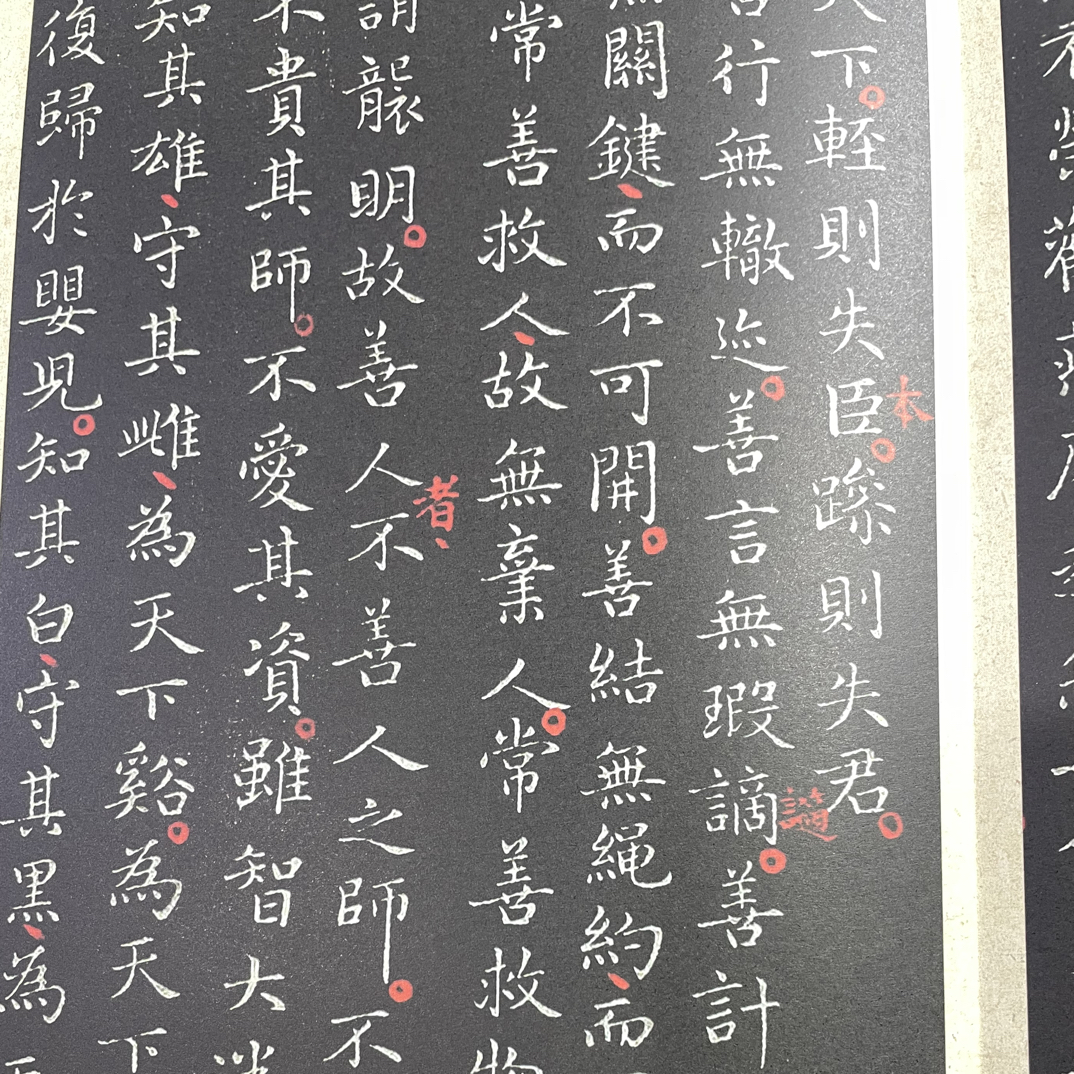 下。輕則失臣。躁則失君。
本
善行無轍迹。善言無瑕謫。善計
讁
關鍵、而不可開。善結無繩約、而
常善救人、故無棄人。常善救
謂襲明。故善人不善人之師。不
者、
不貴其師。不愛其資。雖智大
知其雄、守其雌、為天下谿。為天下
復歸於嬰兒。知其白、守其黑、為